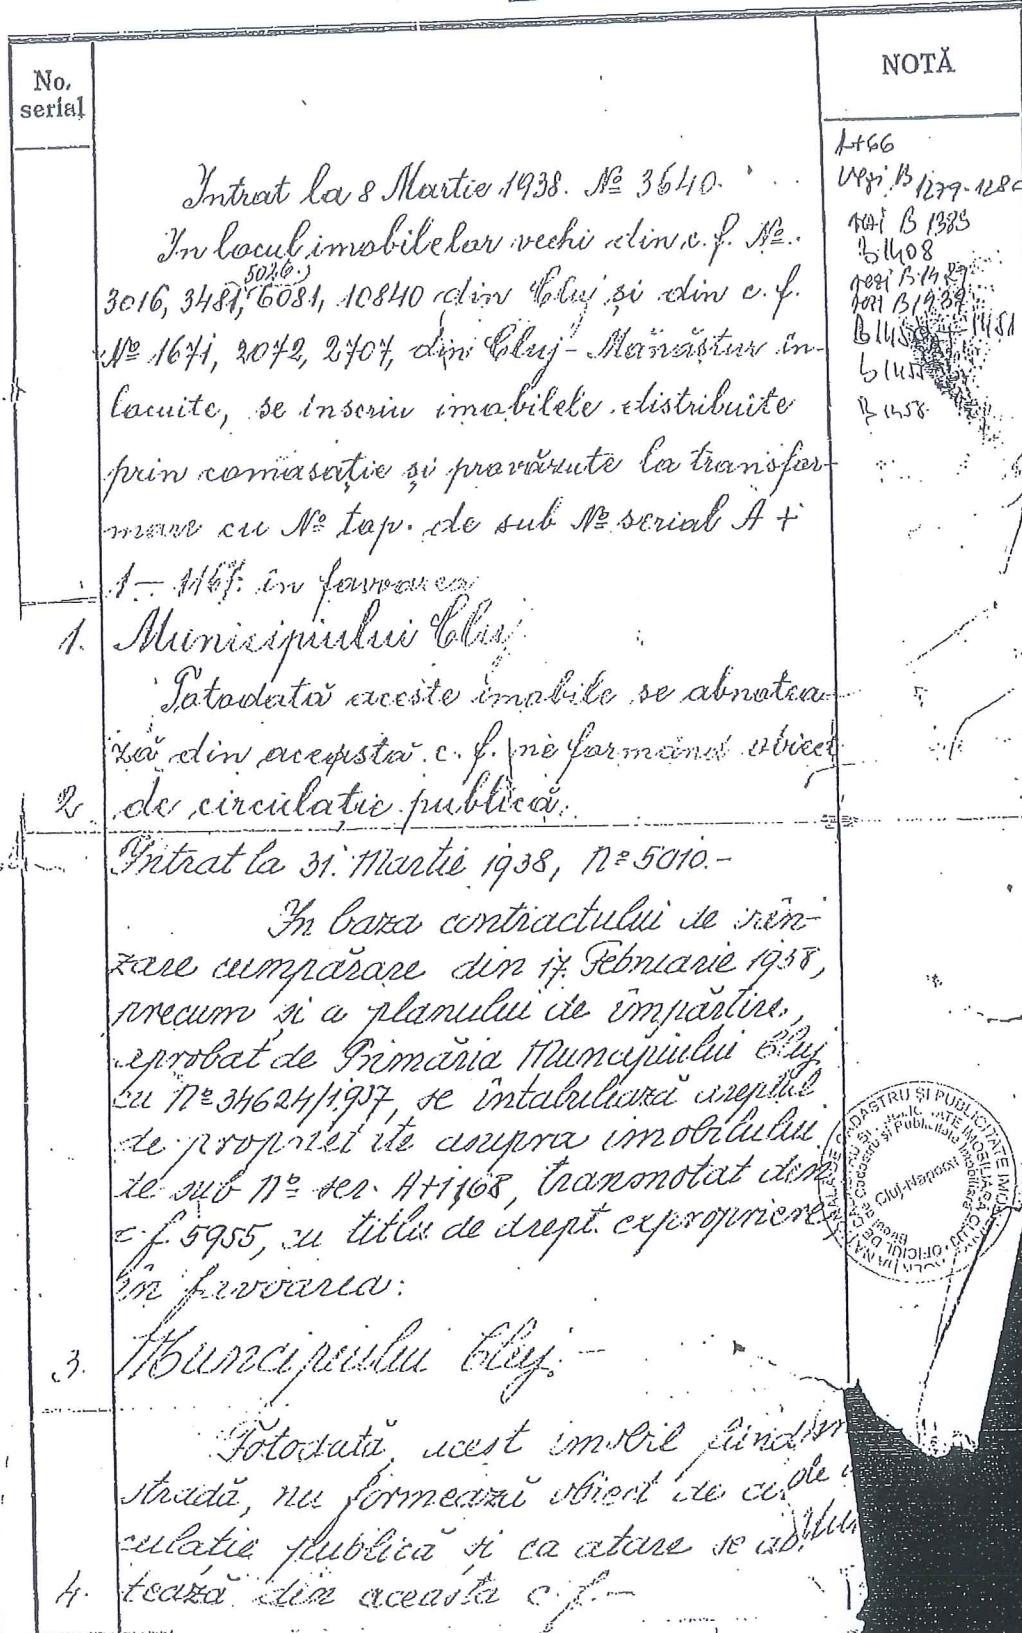 No.
serial
NOTĂ
Intrat la 8 Martie 1938. № 3640.
In locul imobilelor vechi din c. f. №.
5026.
3016, 3481, 6081, 10840 din Cluj și din c. f.
№ 1671, 2072, 2707, din Cluj-Mănăștur în-
locuite, se înscriu imobilele distribuite
prin comasație și provăzute la transfor-
mare cu № top. de sub № serial A +
1 – 1167. în favoarea
1. Municipiului Cluj.
Totodată aceste imobile se abnotea-
ză din aceasta c. f. ne formând obiect
2 de circulație publică.
Intrat la 31. Martie 1938, № 5010.-
In baza contractului de vîn-
zare cumpărare din 17. Februarie 1938,
precum și a planului de împărțire,
aprobat de Primăria Muncipiului Cluj
cu № 34624/1937, se întabulează dreptul
de proprietate asupra imobilului
de sub № ser. A+1168, transnotat din
c. f. 5955, cu titlu de drept expropriere
în favoarea:
3. Muncipiului Cluj.-
Totodată, acest imobil fiind
stradă, nu formează obiect de cir
culație publică și ca atare se ab
4. tează din aceasta c. f.-
1+66
vezi B 1279-128
vezi B 1389
B 1408
B 1458
CADASTRU ȘI PUBLICITATE IMOBILIARĂ
Cluj-Napoca